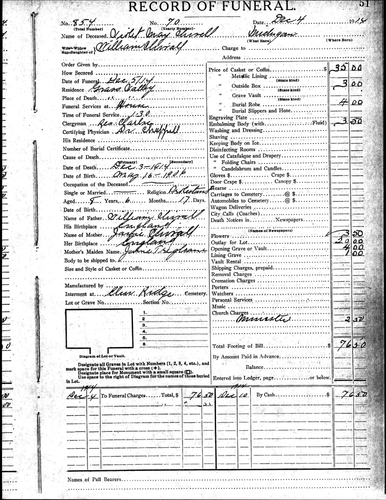 RECORD OF FUNERAL. 51
No. 854 No. 70 Date, Dec 4 1914
Name of Deceased Violet May Michigan
(What State) (Where Born)
William Charge to
Address
Order Given by
How Secured
Date of Funeral Dec 5/14
Residence Grass Valley
Place of Death
Funeral Services at Home
Time of Funeral Service 1:30
Clergyman Rev.
Certifying Physician Dr. Chappell
His Residence
Number of Burial Certificate
Cause of Death
Date of Death Dec 3 - 1914
Date of Birth May 16 - 1906
Occupation of the Deceased
Single or Married Religion
Aged 8 Years, 6 Months, 17 Days
Name of Father William
His Birthplace England
Name of Mother
Her Birthplace England
Mother's Maiden Name
Body to be shipped to
Size and Style of Casket or Coffin
Manufactured by
Interment at Elm Ridge Cemetery.
Lot or Grave No. Section No.
1
2
3
4
5
Diagram of Lot or Vault.
Designate all Graves in Lot with Numbers (1, 2, 3, 4, etc.), and
mark space for this Funeral with a cross
Designate place for Monument with a small square
Use space to right of Diagram for the names of those buried
in Lot.
Price of Casket or Coffin $ 35.00
" Metallic Lining
" Outside Box 3.00
" Grave Vault
" Burial Robe 4.00
" Burial Slippers and Hose
Engraving Plate
Embalming Body (with Fluid)
Washing and Dressing
Shaving
Keeping Body on Ice
Disinfecting Rooms
Use of Catafalque and Drapery
" Folding Chairs
" Candelabrum and Candles
Gloves $ Crape $
Door Crape $ Canopy $
Hearse
Carriages to Cemetery @ $
Automobiles to Cemetery @ $
Wagon Deliveries @ $
City Calls (Coaches) @ $
Death Notices in Newspapers
(Names of Newspapers)
Flowers
Outlay for Lot
Opening Grave or Vault
Lining Grave
Vault Rental
Shipping Charges, prepaid
Removal Charges
Cremation Charges
Porters
Watchers
Personal Services
Music
Church Charges
Minister 2.50
Total Footing of Bill $ 76.50
By Amount Paid in Advance
Balance
Entered into Ledger, page or below.
1914
Dec 4 To Funeral Charges Total, $ 76 50 Dec 10 By Cash $ 76 50
Names of Pall Bearers